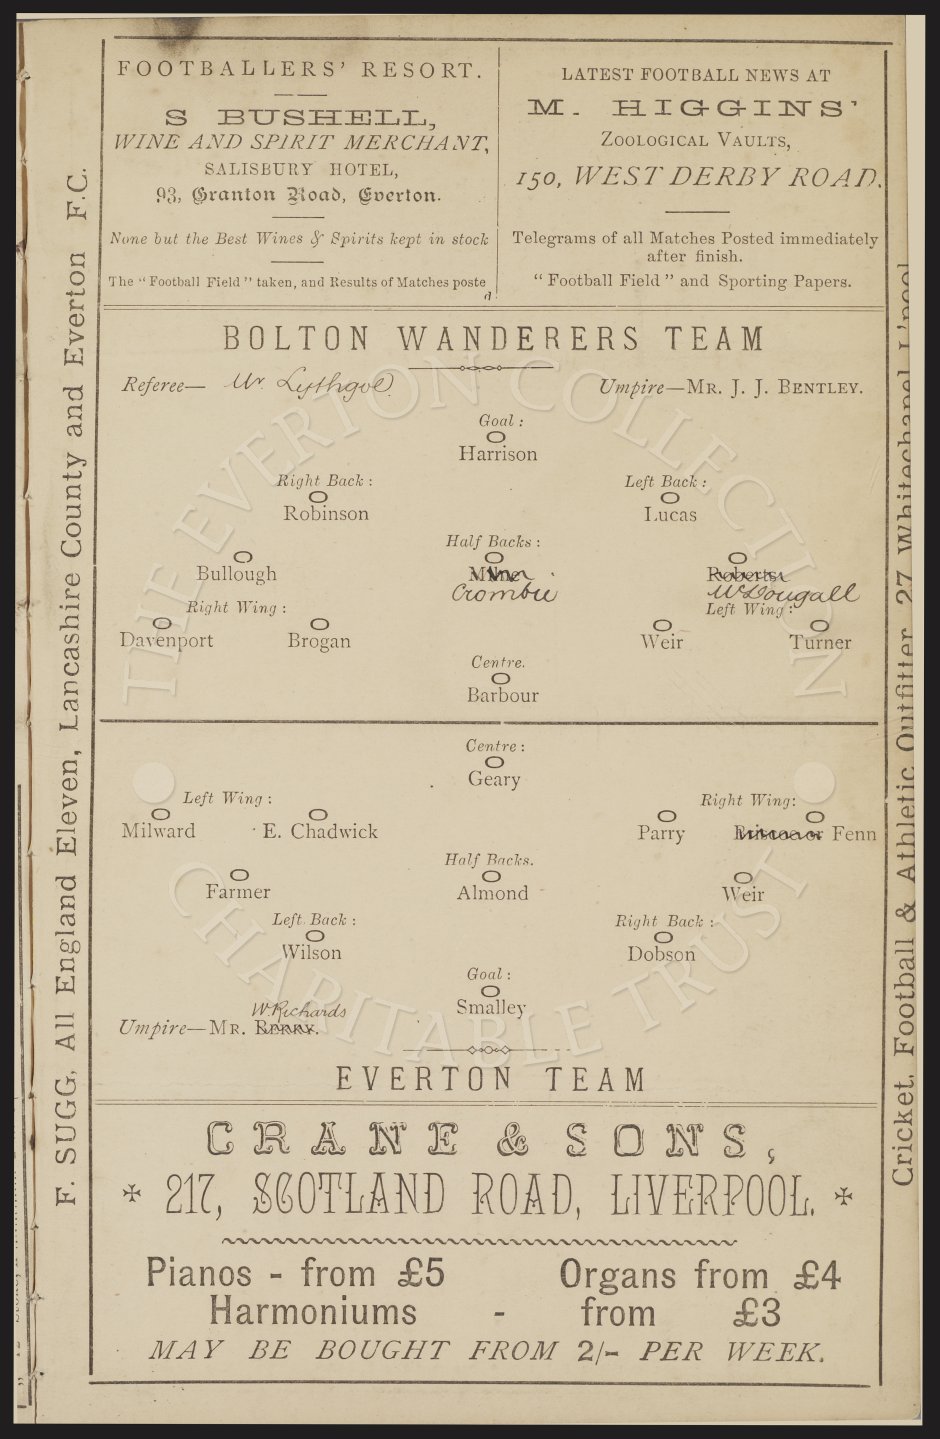 FOOTBALLERS' RESORT.
S BUSHELL,
WINE AND SPIRIT MERCHANT,
SALISBURY HOTEL,
93, Granton Road, Everton.
None but the Best Wines & Spirits kept in stock
The "Football Field" taken, and Results of Matches poste
d
LATEST FOOTBALL NEWS AT
M. HIGGINS'
ZOOLOGICAL VAULTS,
150, WEST DERBY ROAD.
Telegrams of all Matches Posted immediately
after finish.
"Football Field" and Sporting Papers.
F. SUGG, All England Eleven, Lancashire County and Everton F.C.
BOLTON WANDERERS TEAM
Referee— Mr. Lythgoe. Umpire—MR. J. J. BENTLEY.
Goal:
Harrison
Right Back: Left Back:
Robinson Lucas
Half Backs:
Bullough Milne Roberts
Crombie McDougall
Right Wing: Left Wing:
Davenport Brogan Weir Turner
Centre.
Barbour
Centre:
Geary
Left Wing: Right Wing:
Milward E. Chadwick Parry Briscoe or Fenn
Half Backs.
Farmer Almond Weir
Left Back: Right Back:
Wilson Dobson
Goal:
Smalley
W. Richards
Umpire—MR. BERRY.
EVERTON TEAM
Cricket, Football & Athletic Outfitter, 27 Whitechapel, L'pool
CRANE & SONS,
217, SCOTLAND ROAD, LIVERPOOL.
Pianos - from £5 Organs from £4
Harmoniums - from £3
MAY BE BOUGHT FROM 2/- PER WEEK.
THE EVERTON COLLECTION
CHARITABLE TRUST